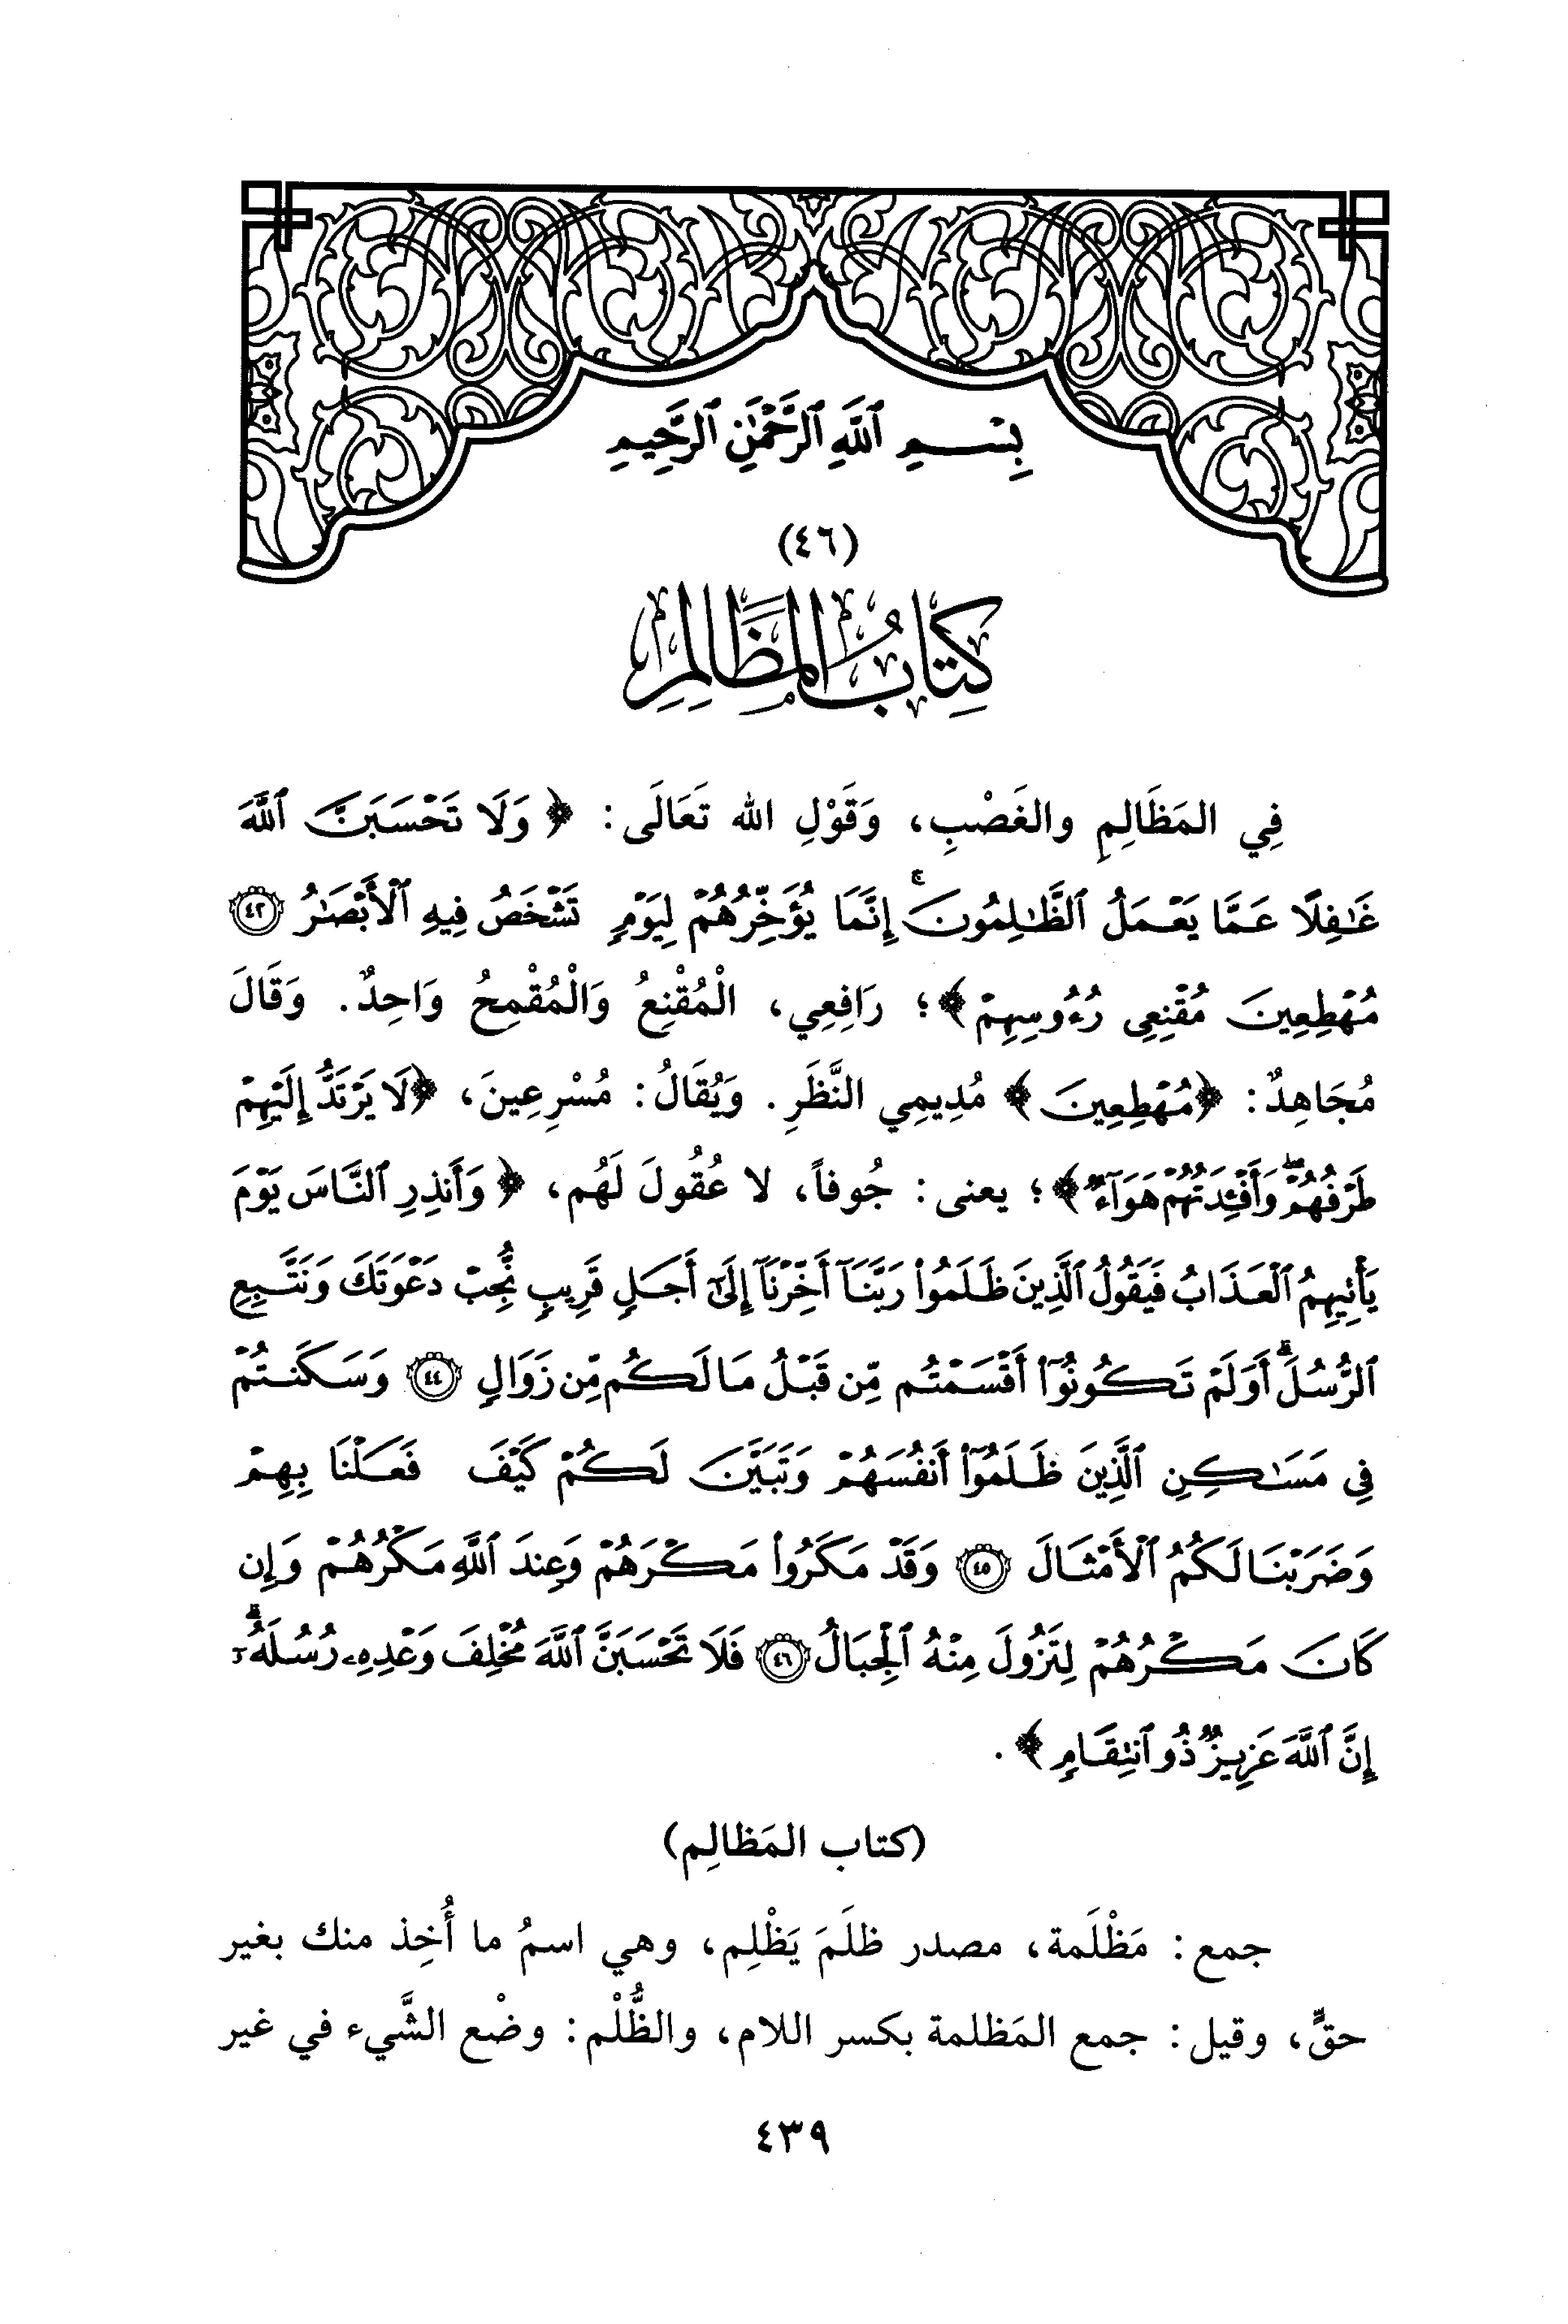 بِسْمِ ٱللَّهِ ٱلرَّحْمَٰنِ ٱلرَّحِيمِ
(٤٦)
كِتَابُ المَظَالِمِ
فِي المَظَالِمِ والغَصْبِ، وَقَوْلِ الله تَعَالَى: ﴿وَلَا تَحْسَبَنَّ ٱللَّهَ
غَٰفِلًا عَمَّا يَعْمَلُ ٱلظَّٰلِمُونَ ۚ إِنَّمَا يُؤَخِّرُهُمْ لِيَوْمٍ تَشْخَصُ فِيهِ ٱلْأَبْصَٰرُ ٤٢
مُهْطِعِينَ مُقْنِعِى رُءُوسِهِمْ﴾؛ رَافِعِي، الْمُقْنِعُ وَالْمُقْمِحُ وَاحِدٌ. وَقَالَ
مُجَاهِدٌ: ﴿مُهْطِعِينَ﴾ مُدِيمِي النَّظَرِ. وَيُقَالُ: مُسْرِعِينَ، ﴿لَا يَرْتَدُّ إِلَيْهِمْ
طَرْفُهُمْ ۖ وَأَفْـِٔدَتُهُمْ هَوَآءٌ﴾؛ يعنى: جُوفاً، لا عُقُولَ لَهُم، ﴿وَأَنذِرِ ٱلنَّاسَ يَوْمَ
يَأْتِيهِمُ ٱلْعَذَابُ فَيَقُولُ ٱلَّذِينَ ظَلَمُوا۟ رَبَّنَآ أَخِّرْنَآ إِلَىٰٓ أَجَلٍ قَرِيبٍ نُّجِبْ دَعْوَتَكَ وَنَتَّبِعِ
ٱلرُّسُلَ ۗ أَوَلَمْ تَكُونُوٓا۟ أَقْسَمْتُم مِّن قَبْلُ مَا لَكُم مِّن زَوَالٍ ٤٤ وَسَكَنتُمْ
فِى مَسَٰكِنِ ٱلَّذِينَ ظَلَمُوٓا۟ أَنفُسَهُمْ وَتَبَيَّنَ لَكُمْ كَيْفَ فَعَلْنَا بِهِمْ
وَضَرَبْنَا لَكُمُ ٱلْأَمْثَالَ ٤٥ وَقَدْ مَكَرُوا۟ مَكْرَهُمْ وَعِندَ ٱللَّهِ مَكْرُهُمْ وَإِن
كَانَ مَكْرُهُمْ لِتَزُولَ مِنْهُ ٱلْجِبَالُ ٤٦ فَلَا تَحْسَبَنَّ ٱللَّهَ مُخْلِفَ وَعْدِهِۦ رُسُلَهُۥٓ ۗ
إِنَّ ٱللَّهَ عَزِيزٌ ذُو ٱنتِقَامٍ﴾.
(كتاب المَظالِم)
جمع: مَظْلَمة، مصدر ظلَمَ يَظْلِم، وهي اسمُ ما أُخِذ منك بغير
حقٍّ، وقيل: جمع المَظلمة بكسر اللام، والظُّلْم: وضْع الشَّيء في غير
٤٣٩